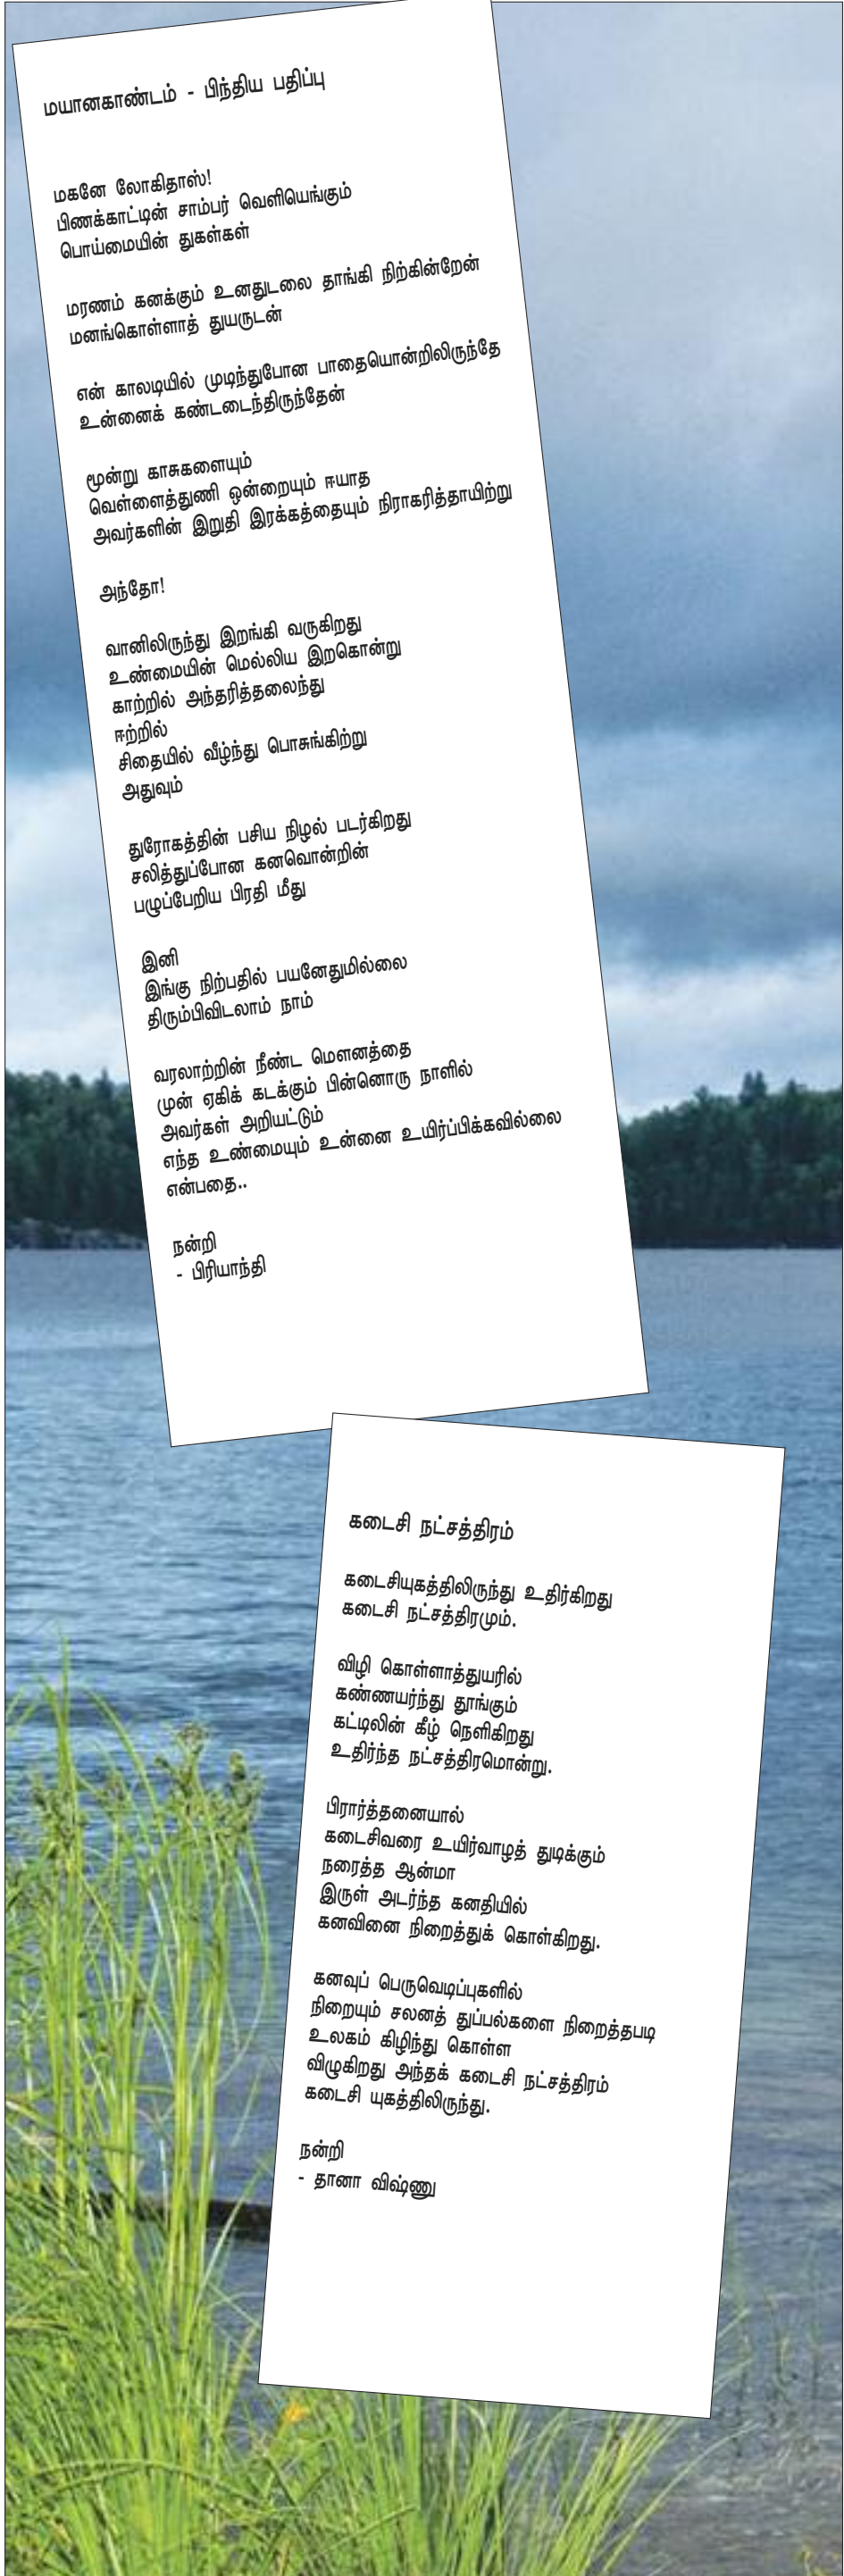 மயானகாண்டம் - பிந்திய பதிப்பு
மகனே லோகிதாஸ்!
பிணக்காட்டின் சாம்பர் வெளியெங்கும்
பொய்மையின் துகள்கள்
மரணம் கனக்கும் உனதுடலை தாங்கி நிற்கின்றேன்
மனங்கொள்ளாத் துயருடன்
என் காலடியில் முடிந்துபோன பாதையொன்றிலிருந்தே
உன்னைக் கண்டடைந்திருந்தேன்
மூன்று காசுகளையும்
வெள்ளைத்துணி ஒன்றையும் ஈயாத
அவர்களின் இறுதி இரக்கத்தையும் நிராகரித்தாயிற்று
அந்தோ!
வானிலிருந்து இறங்கி வருகிறது
உண்மையின் மெல்லிய இறகொன்று
காற்றில் அந்தரித்தலைந்து
ஈற்றில்
சிதையில் வீழ்ந்து பொசுங்கிற்று
அதுவும்
துரோகத்தின் பசிய நிழல் படர்கிறது
சலித்துப்போன கனவொன்றின்
பழுப்பேறிய பிரதி மீது
இனி
இங்கு நிற்பதில் பயனேதுமில்லை
திரும்பிவிடலாம் நாம்
வரலாற்றின் நீண்ட மௌனத்தை
முன் ஏகிக் கடக்கும் பின்னொரு நாளில்
அவர்கள் அறியட்டும்
எந்த உண்மையும் உன்னை உயிர்ப்பிக்கவில்லை
என்பதை..
நன்றி
- பிரியாந்தி
கடைசி நட்சத்திரம்
கடைசியுகத்திலிருந்து உதிர்கிறது
கடைசி நட்சத்திரமும்.
விழி கொள்ளாத்துயரில்
கண்ணயர்ந்து தூங்கும்
கட்டிலின் கீழ் நெளிகிறது
உதிர்ந்த நட்சத்திரமொன்று.
பிரார்த்தனையால்
கடைசிவரை உயிர்வாழத் துடிக்கும்
நரைத்த ஆன்மா
இருள் அடர்ந்த கனதியில்
கனவினை நிறைத்துக் கொள்கிறது.
கனவுப் பெருவெடிப்புகளில்
நிறையும் சலனத் துப்பல்களை நிறைத்தபடி
உலகம் கிழிந்து கொள்ள
விழுகிறது அந்தக் கடைசி நட்சத்திரம்
கடைசி யுகத்திலிருந்து.
நன்றி
- தானா விஷ்ணு